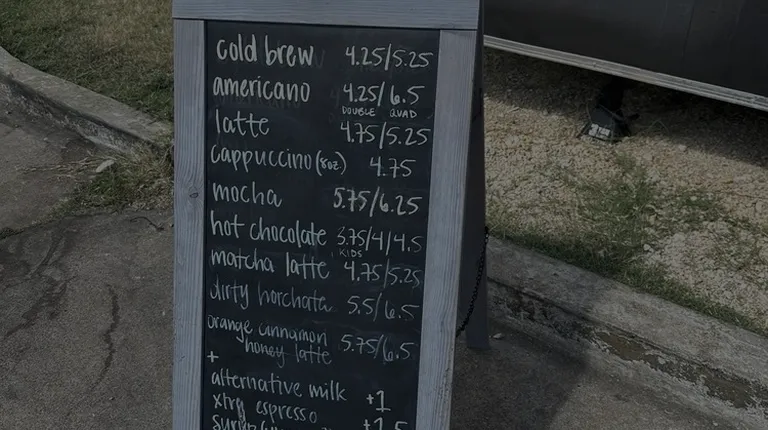 cold brew 4.25/5.25
americano 4.25/6.5
DOUBLE QUAD
latte 4.75/5.25
cappuccino (8oz.) 4.75
mocha 5.75/6.25
hot chocolate 3.75/4/4.5
KIDS
matcha latte 4.75/5.25
dirty horchata 5.5/6.5
orange cinnamon
honey latte 5.75/6.5
+
alternative milk +1
xtra espresso